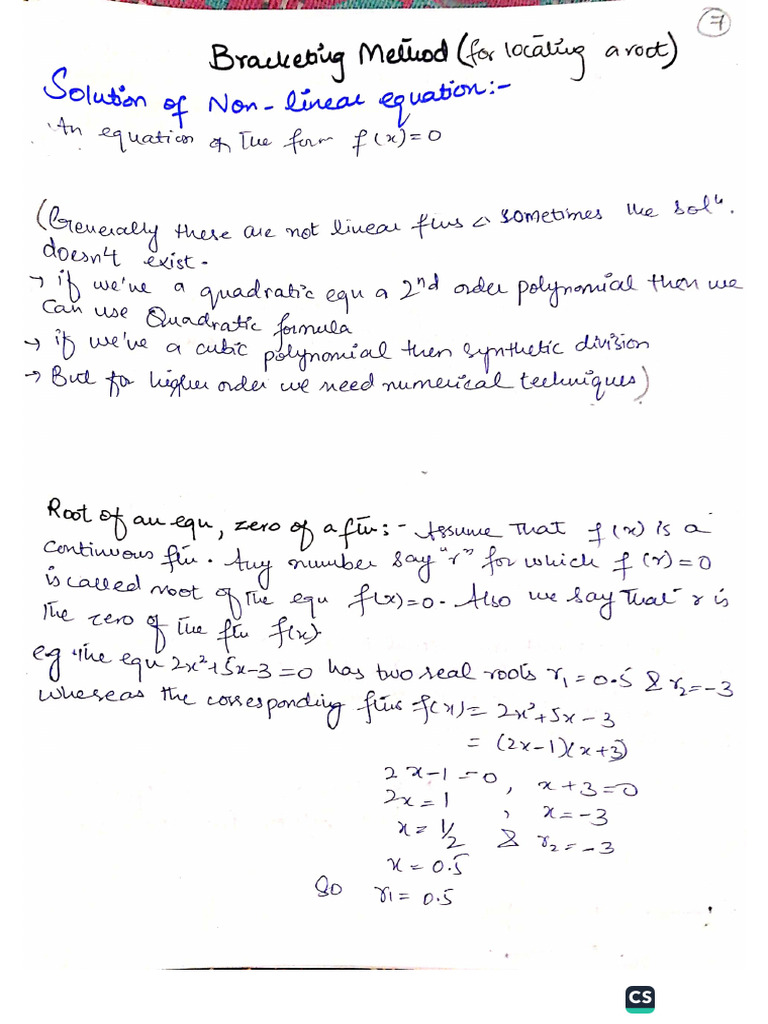 7
Bracketing Method (for locating a root)
Solution of Non-linear equation:-
An equation of the form f(x)=0
(Generally these are not linear ftns & sometimes the solⁿ.
doesn't exist.
→ if we've a quadratic equ a 2nd order polynomial then we
can use Quadratic formula
→ if we've a cubic polynomial then synthetic division
→ But for higher order we need numerical techniques)
Root of an equ, zero of a ftn:- Assume that f(x) is a
continuous ftn. Any number say "r" for which f(r)=0
is called root of the equ f(x)=0. Also we say that r is
the zero of the ftn f(x).
eg the equ 2x²+5x-3=0 has two real roots r₁=0.5 & r₂=-3
whereas the corresponding ftns f(x)= 2x²+5x-3
= (2x-1)(x+3)
2x-1=0, x+3=0
2x=1 , x=-3
x=1/2 & r₂=-3
x=0.5
So r₁=0.5
CS